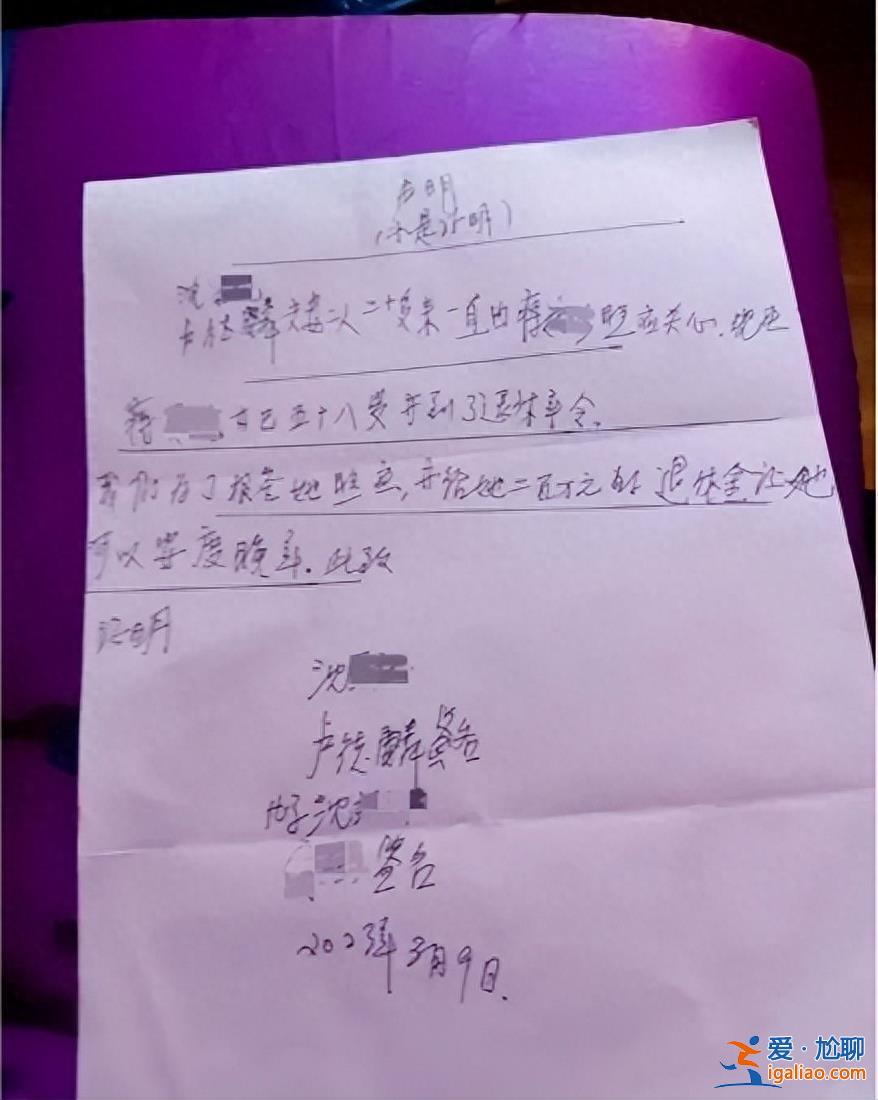 声明
(不是证明)
沈
卢德麟夫妻二人二十多来一直由蒋 照应关心.现在
蒋 女已五十八岁并到了退休年令.
我们为了报答她照应,并给她二百万元的退休金让她
可以安度晚年.此致
证明
沈
卢德麟签名
沈
签名
2023年3月9日.
爱·尬聊
igaliao.com